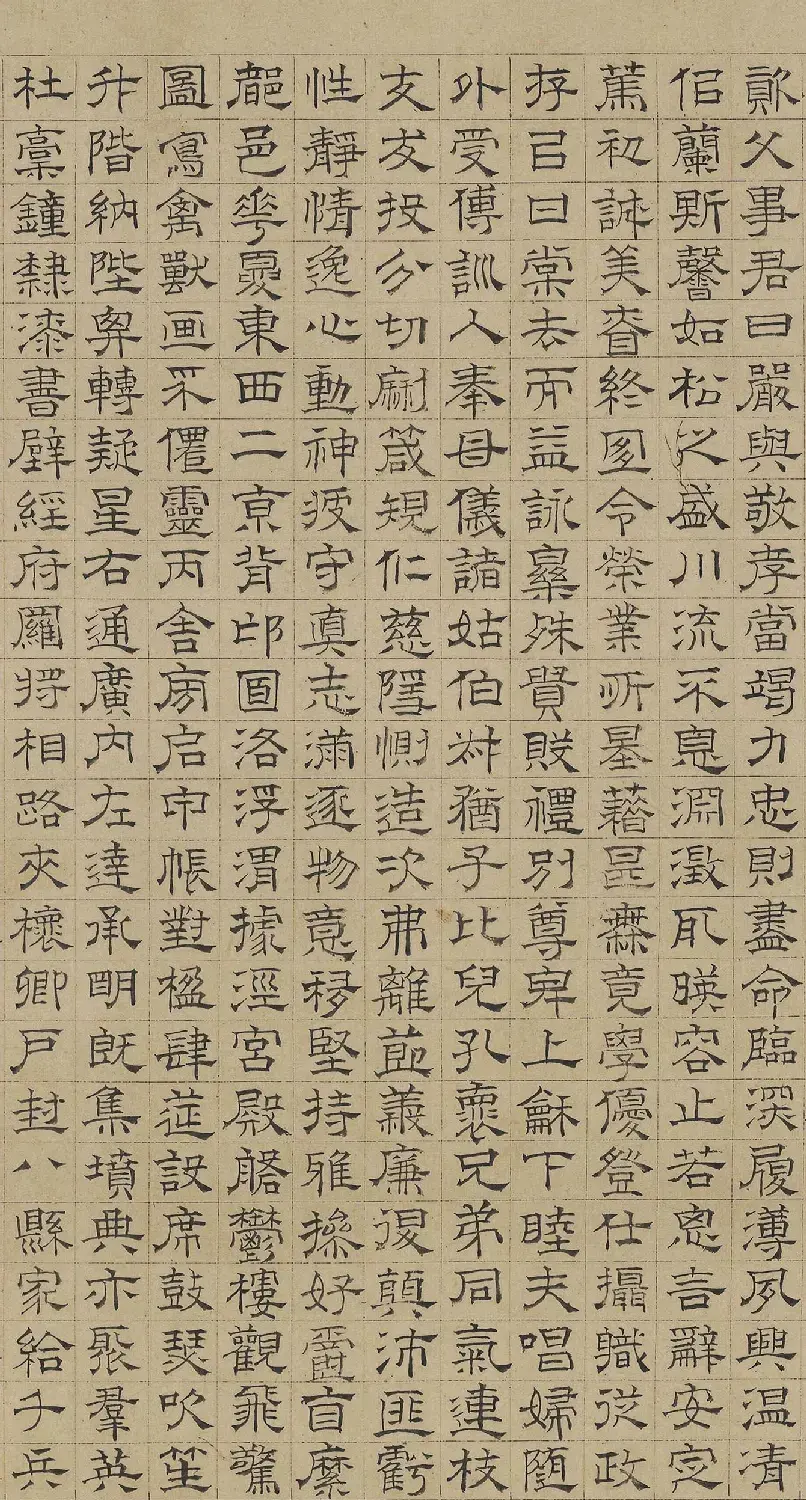 資父事君曰嚴與敬孝當竭力忠則盡命臨深履薄夙興温凊
佀蘭斯馨如松之盛川流不息淵澂取暎容止若思言辭安定
篤初誠美眘終宜令榮業所基藉甚無竟學優登仕攝職從政
存㠯甘棠去而益詠樂殊貴賤禮別尊卑上龢下睦夫唱婦隨
外受傅訓入奉母儀諸姑伯叔猶子比兒孔懷兄弟同氣連枝
交友投分切磨箴規仁慈隱惻造次弗離節義廉退顛沛匪虧
性靜情逸心動神疲守真志滿逐物意移堅持雅操好爵自縻
都邑華夏東西二京背邙面洛浮渭據涇宮殿盤鬱樓觀飛驚
圖寫禽獸画采僊靈丙舍傍启甲帳對楹肆筵設席鼓瑟吹笙
升階納陛弁轉疑星右通廣內左達承明既集墳典亦聚羣英
杜稾鍾隸漆書壁經府羅將相路夾槐卿戶封八縣家給千兵